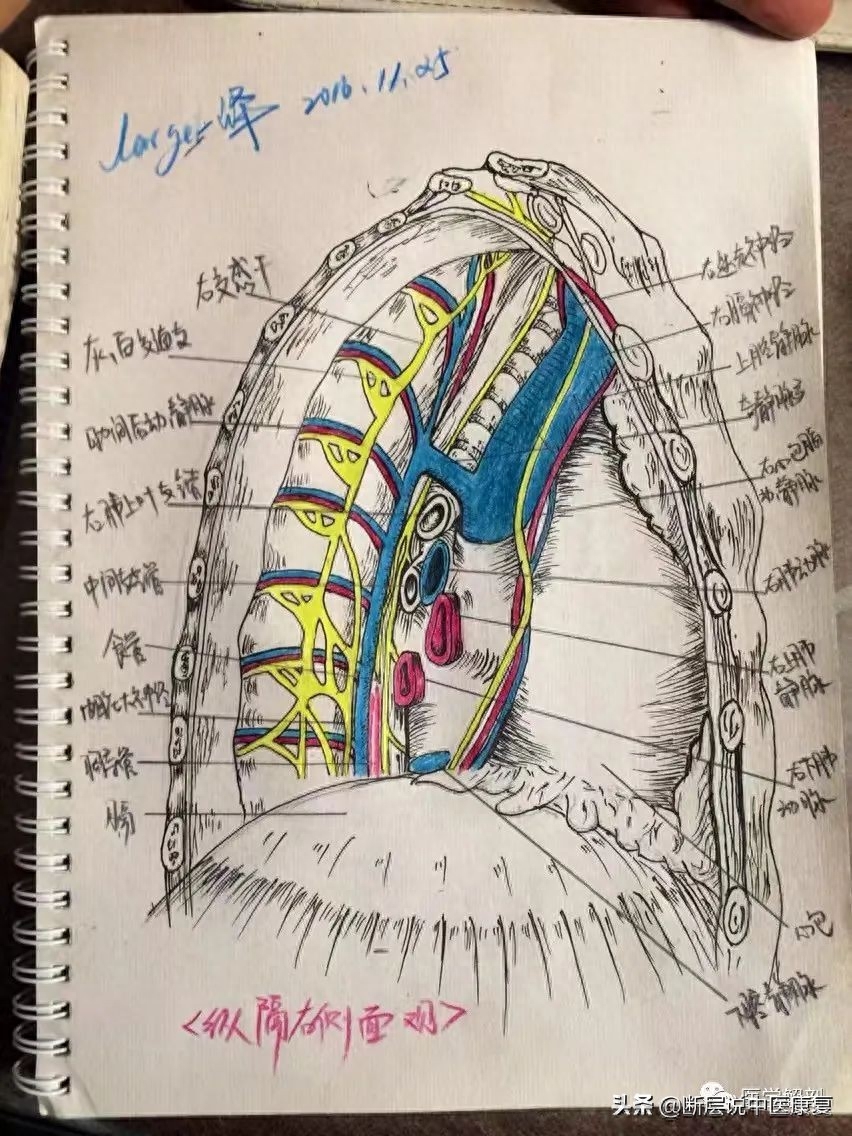 larger 译 2016.11.25
右交感干
灰、白交通支
肋间后动静脉
右肺上叶支气管
中间支气管
食管
内脏大神经
胸导管
膈
右迷走神经
右膈神经
上腔静脉
奇静脉弓
右心包膈
动静脉
右肺动脉
右上肺
静脉
右下肺
心包
下腔静脉
<纵隔右侧面观>
医学解剖
头条 @断层说中医康复